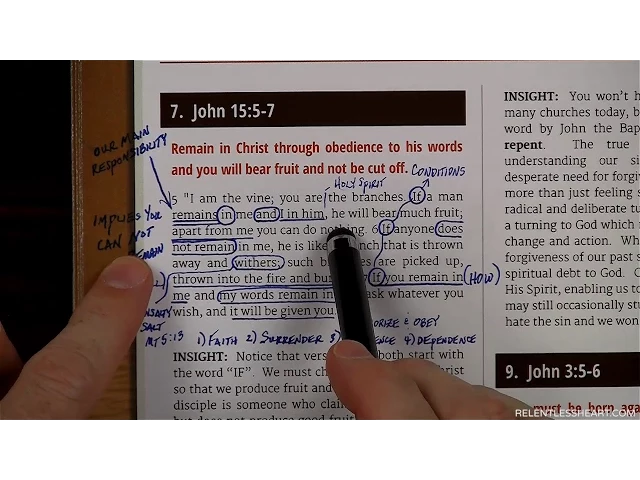 7. John 15:5-7
Remain in Christ through obedience to his words
and you will bear fruit and not be cut off. CONDITIONS
HOLY SPIRIT
OUR MAIN
RESPONSIBILITY
5 "I am the vine; you are the branches. If a man
remains in me and I in him, he will bear much fruit;
IMPLIES YOU
CAN NOT
apart from me you can do nothing. 6 If anyone does
not remain in me, he is like branch that is thrown
away and withers; such are picked up,
thrown into the fire and If you remain in (HOW)
me and my words remain in ask whatever you
wish, and it will be given you.
SALT
MT 5:13
& OBEY
1) FAITH 2) SURRENDER 3) 4) DEPENDENCE
INSIGHT: Notice that both start with
the word "IF". We must
so that we produce fruit and
disciple is someone who
INSIGHT: You won't
many churches today,
word by John the
repent. The true
understanding our
desperate need for
more than just feeling
radical and deliberate
a turning to God which
change and action.
forgiveness of our past
spiritual debt to God.
His Spirit, enabling us
may still occasionally
hate the sin and we
9. John 3:5-6
must be born
RELENTLESSHEART.COM